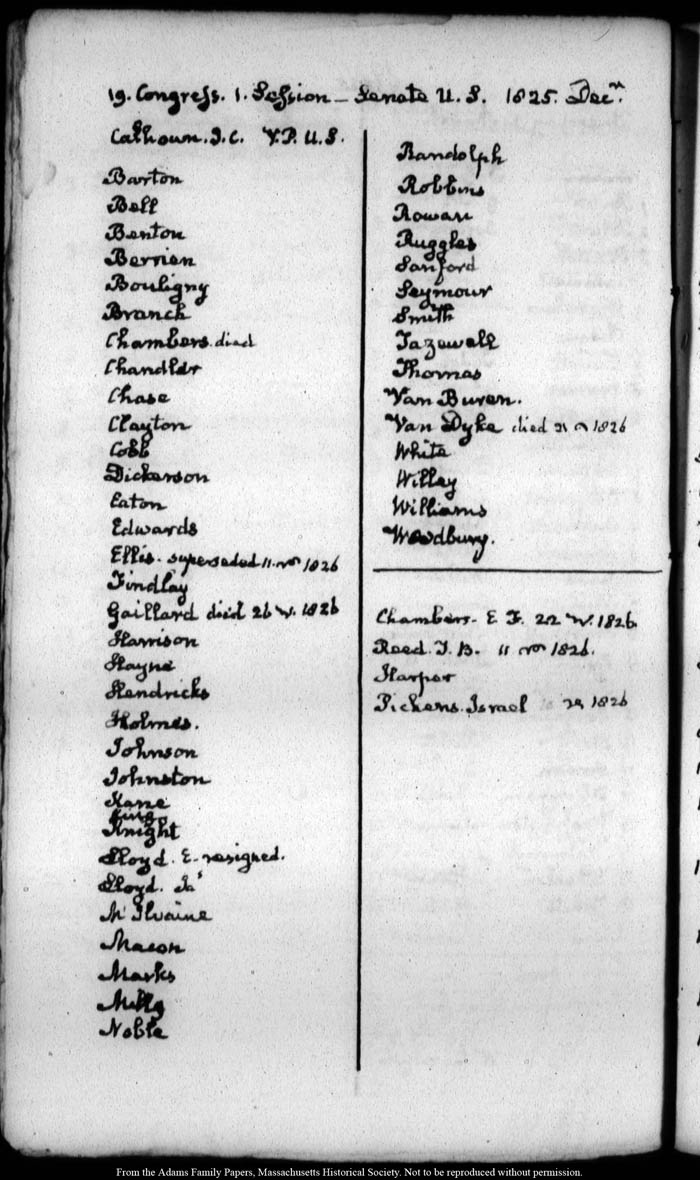 19. Congress. 1. Session – Senate U.S. 1825. Decr.
Calhoun. J. C. V. P. U. S.
Barton
Bell
Benton
Berrien
Bouligny
Branch
Chambers. died
Chandler
Chase
Clayton
Cobb
Dickerson
Eaton
Edwards
Ellis. superseded 11. 1826
Findlay
Gaillard died 26 1826
Harrison
Hayne
Hendricks
Holmes.
Johnson
Johnston
Kane
King
Knight
Lloyd. E. resigned.
Lloyd. Jas
McIlvaine
Macon
Marks
Mills
Noble
Randolph
Robbins
Rowan
Ruggles
Sanford
Seymour
Smith
Tazewell
Thomas
Van Buren.
Van Dyke died 1826
White
Willey
Williams
Woodbury.
Chambers. E. F. 22 1826.
Reed. T. B. 11 1826.
Harper
Pickens. Israel 1826
From the Adams Family Papers, Massachusetts Historical Society. Not to be reproduced without permission.